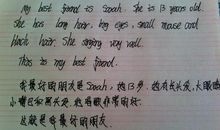 my best friend is Sarah. She is 13 years old.
She has long hair, big eyes, small mouse and
black hair. She singing very well.
This is my best friend.
我最好的朋友是Sarah，她13岁，她有长头发，大眼睛
小嘴巴和黑头发，她唱歌非常好听
这就是我最好的朋友.